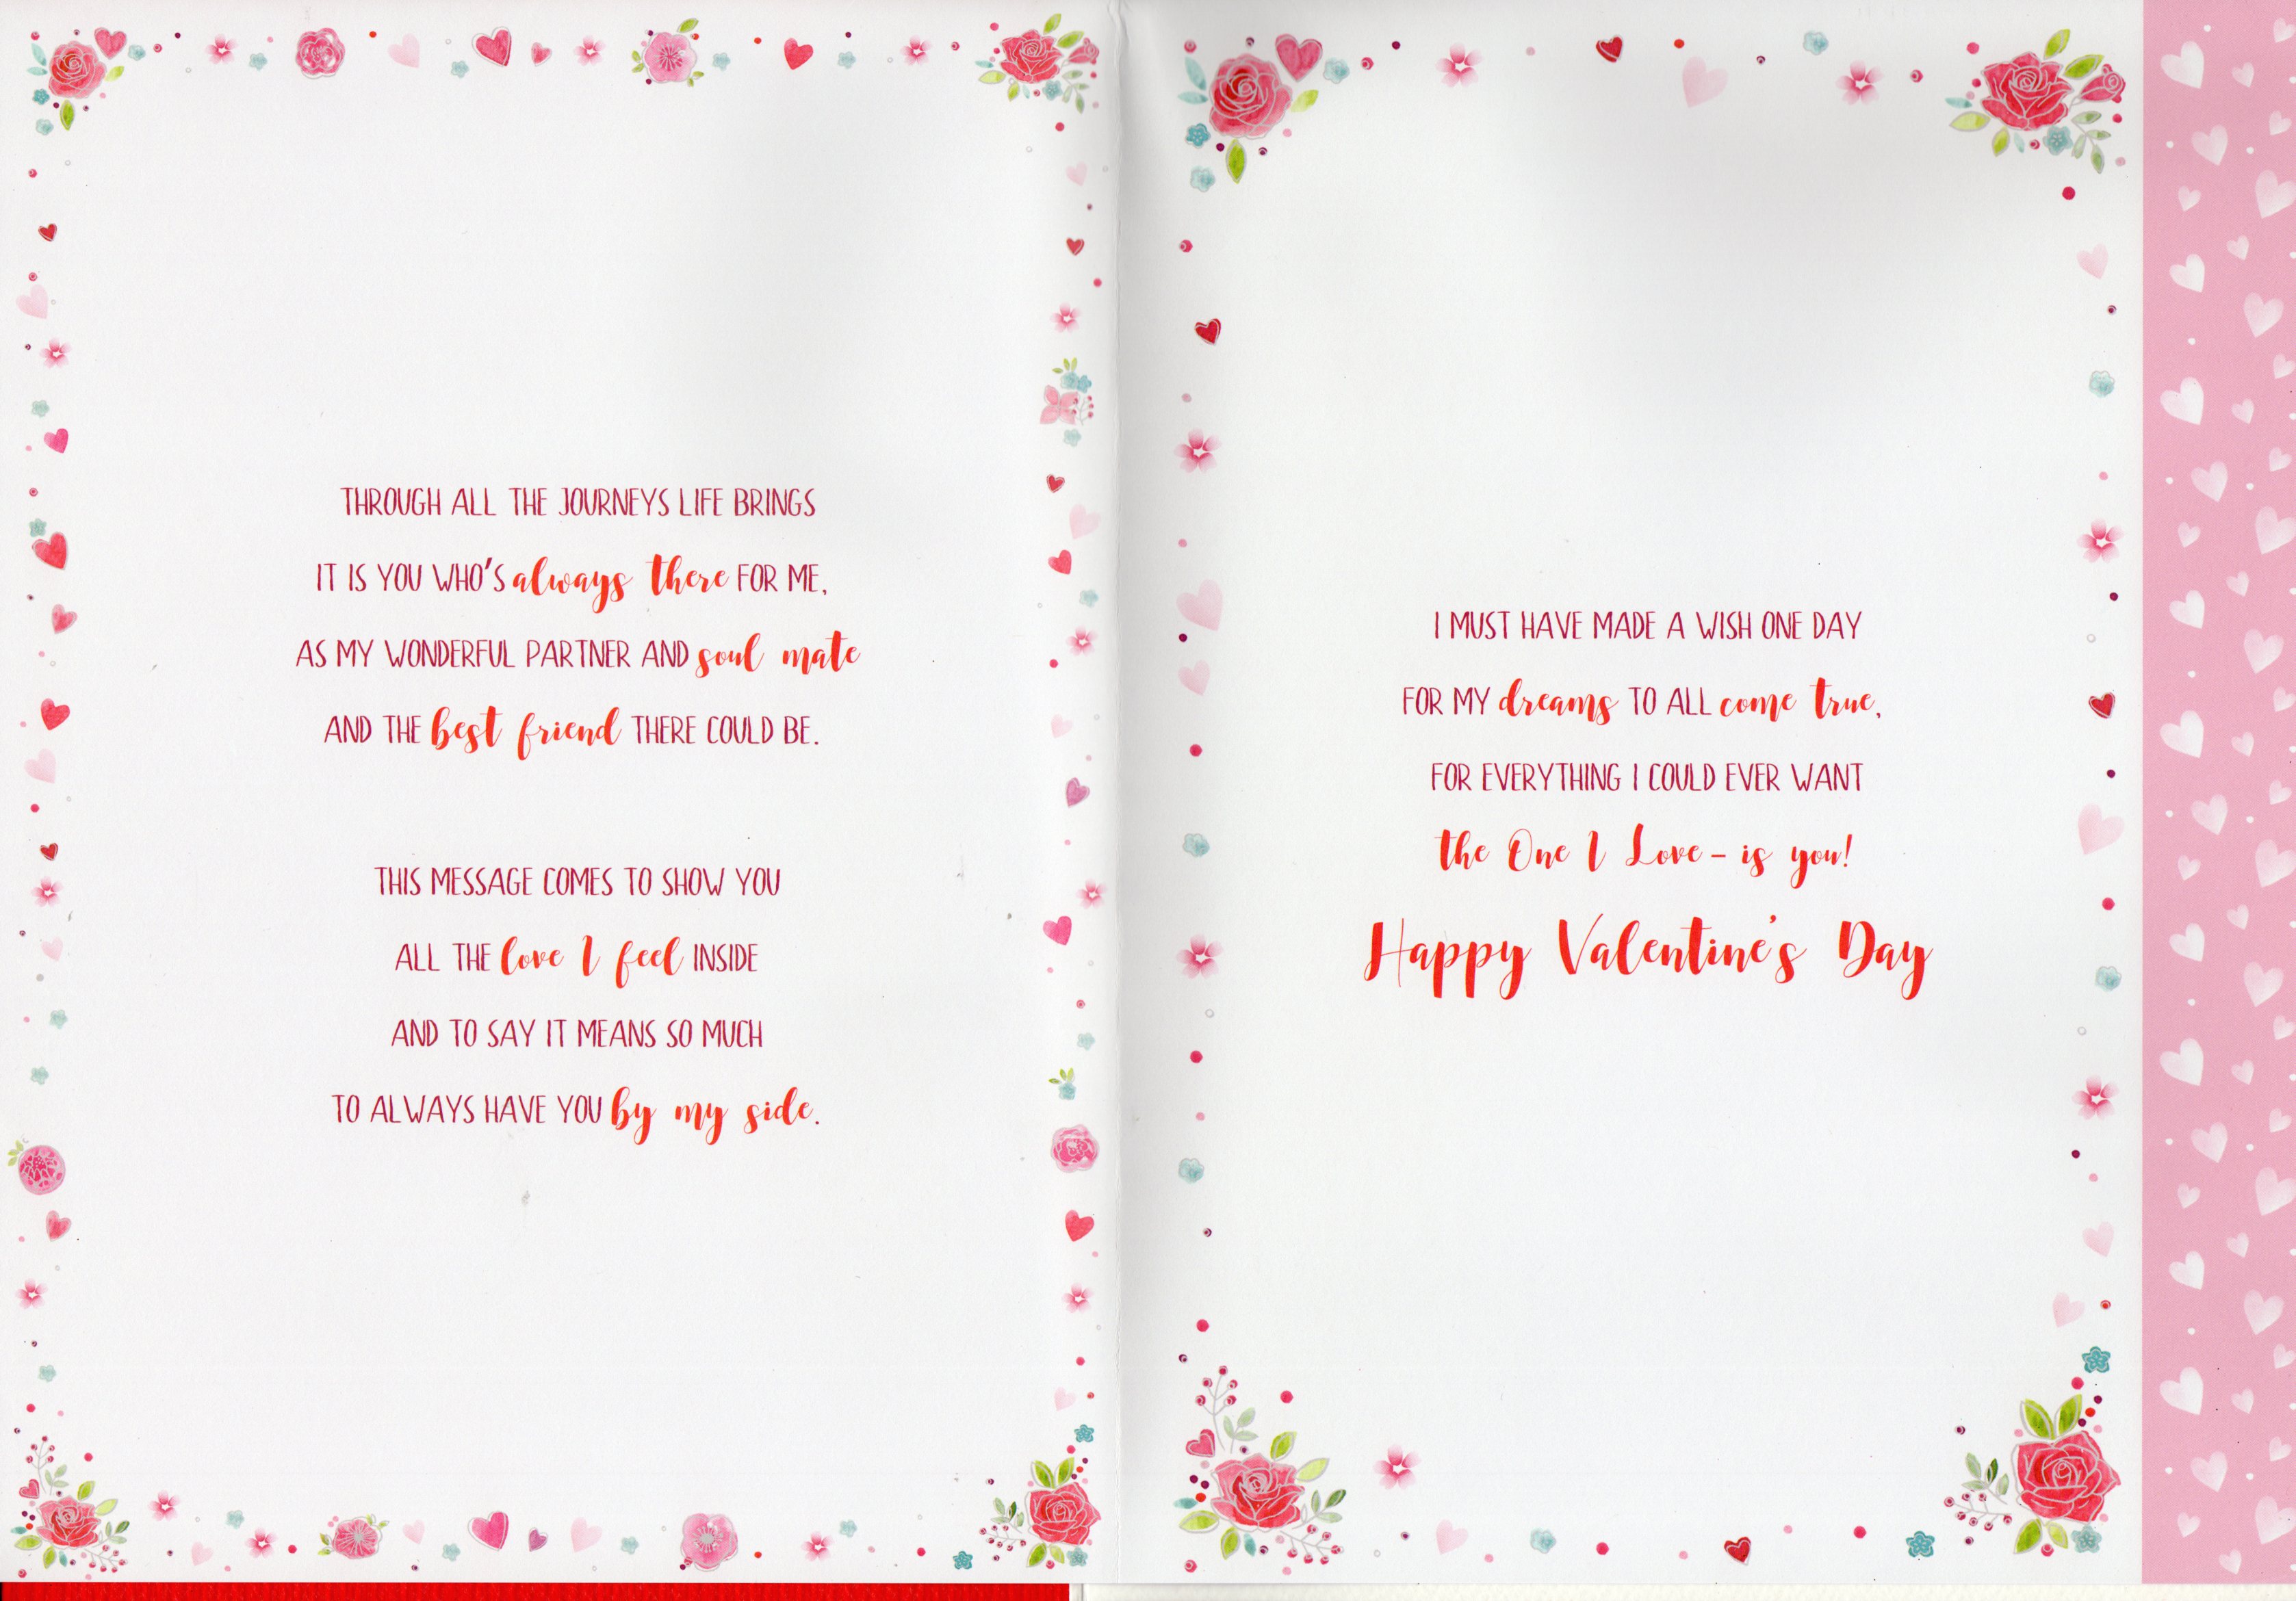 THROUGH ALL THE JOURNEYS LIFE BRINGS
IT IS YOU WHO'S always there FOR ME,
AS MY WONDERFUL PARTNER AND soul mate
AND THE best friend THERE COULD BE.
THIS MESSAGE COMES TO SHOW YOU
ALL THE love I feel INSIDE
AND TO SAY IT MEANS SO MUCH
TO ALWAYS HAVE YOU by my side.
I MUST HAVE MADE A WISH ONE DAY
FOR MY dreams TO ALL come true,
FOR EVERYTHING I COULD EVER WANT
the One I Love – is you!
Happy Valentine's Day